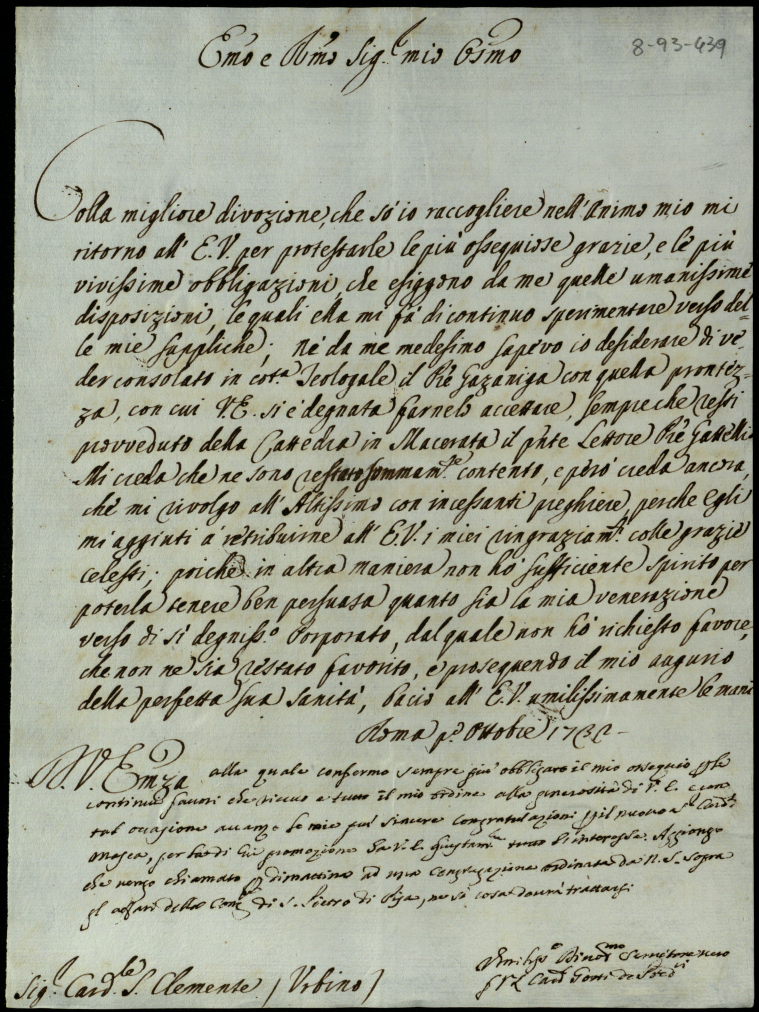 8-93-439
Emo e Rmo Sig.r mio Osmo
Colla migliore divozione, che sò io raccogliere nell'Animo mio mi
ritorno all'E.V. per protestarle le più ossequiose grazie, e le più
vivissime obbligazioni, che esiggono da me quelle umanissime
disposizioni, le quali ella mi fà di continuo sperimentare verso del=
le mie suppliche; nè da me medesimo sapevo io desiderare di ve=
der consolato in cot.a Teologale il Pře Gazaniga con quella prontez=
za, con cui V.E. si è degnata farnelo accettare, sempre che resti
provveduto della Cattedra in Macerata il pñte Lettore Pře Gattelli.
Mi creda che ne sono restato sommam.te contento, e però creda ancora,
che mi rivolgo all'Altissimo con incessanti preghiere, perche egli
mi aggiuti à retribuirne all'E.V. i miei ringraziam.ti colle grazie
celesti; poiche in altra maniera non hò sufficiente spirito per
poterla tenere ben persuasa quanto sia la mia venerazione
verso di sì degniss.o Porporato, dal quale non hò richiesto favore,
che non ne sia restato favorito, e proseguendo il mio augurio
della perfetta sua sanità, bacio all'E.V. umilissimamente le mani
Roma p.o Ottobre 1732
V. Emza alla quale confermo sempre più obbligato il mio ossequio p le
continui favori che ricevo e tutto il mio ordine alla generosità di V. E. e con
tal occasione avanzo le mie più sincere congratulazioni p il nuovo S.r Card.
Mosca, per la di cui promozione da V. E. giustam.te tutto s'interessa. Aggiongo
che vengo chiamato p dimattina ad una congregazione ordinata da N. S. sopra
gl'affari della di S. Pietro di, ne sò cosa dourà trattarsi
Umiliss.o Servitore vero
Card.
Sig.r Card.le S. Clemente (Urbino)